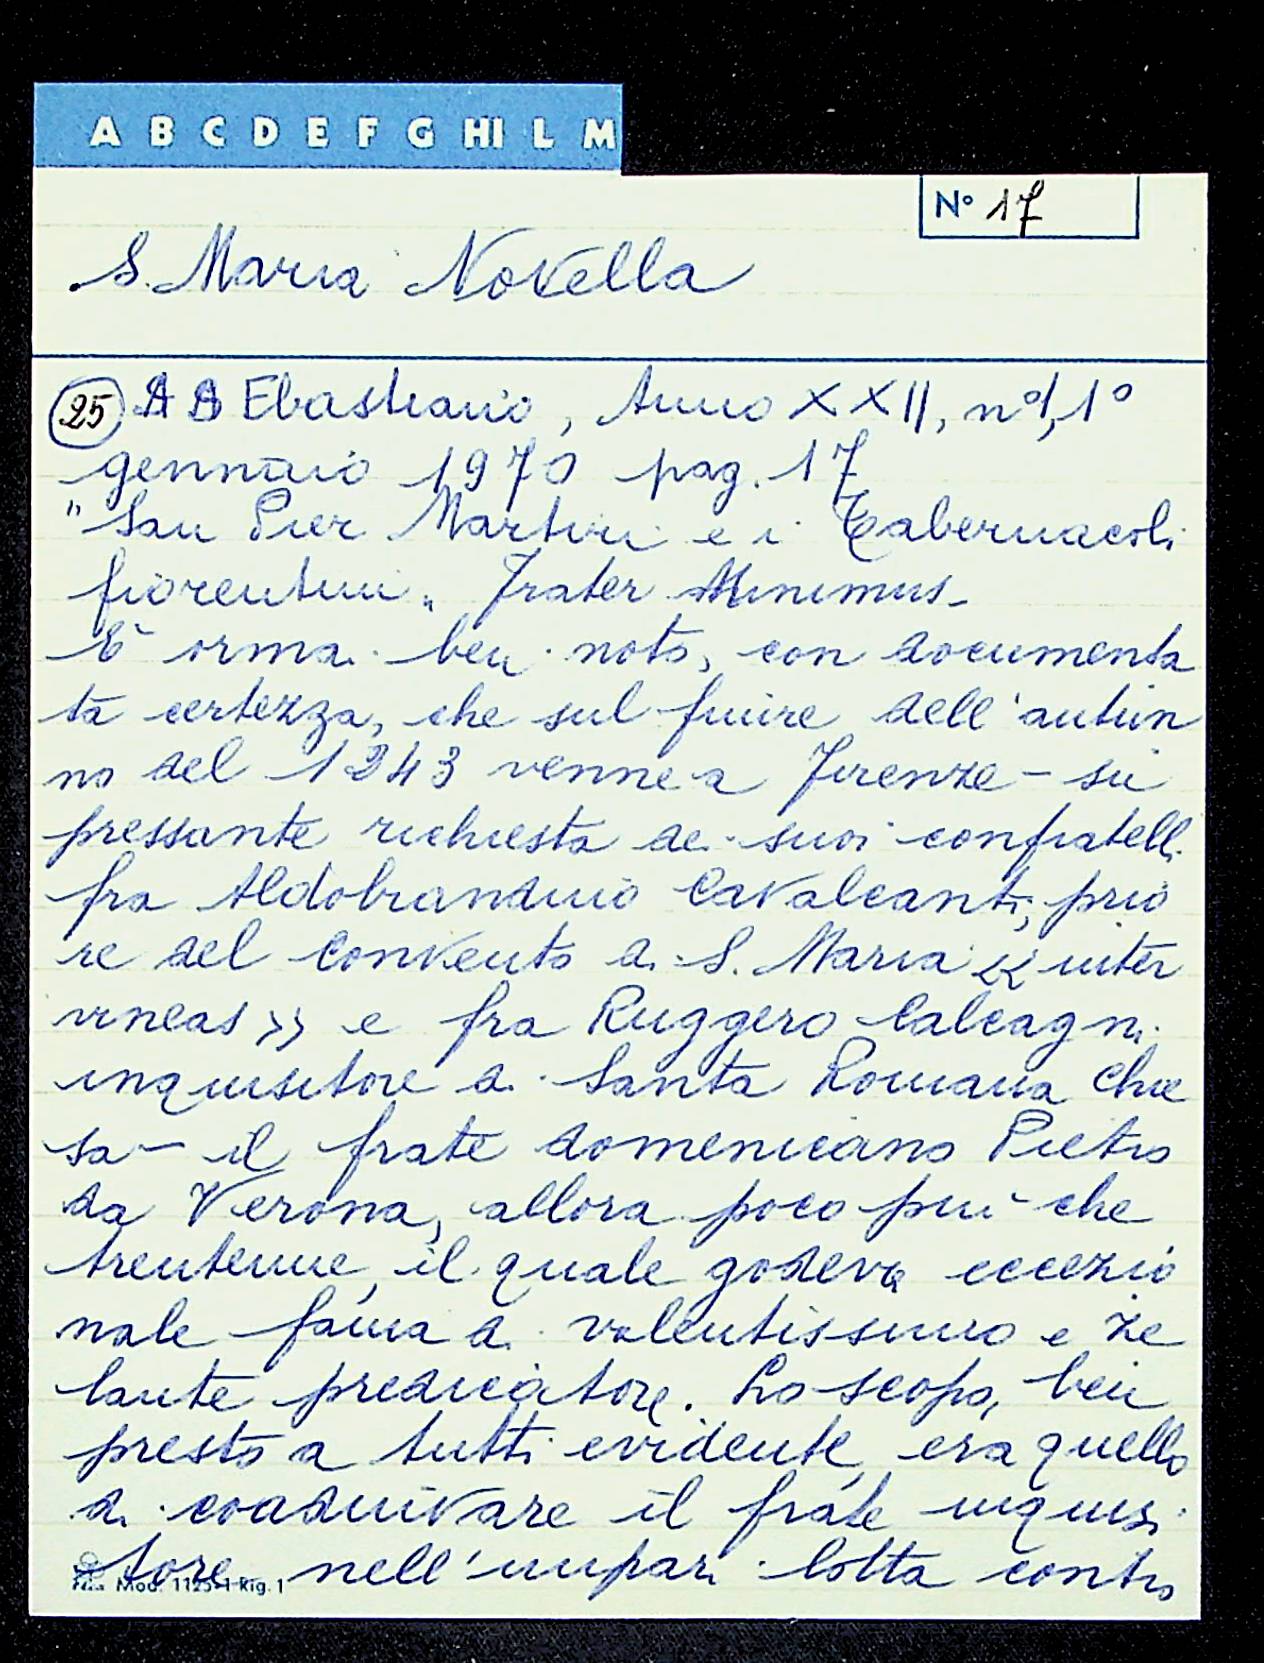 A B C D E F G HI L M
N° 17
S. Maria Novella
25 A B Ebastiano, Anno XXII, n° 1, 1°
gennaio 1970 pag. 17
"San Pier Martiri e i Tabernacoli
fiorentini" Frater Minimus -
È ormai ben noto, con documenta
ta certezza, che sul finire dell'autun
no del 1243 venne a Firenze - su
pressante richiesta dei suoi confratelli
fra Aldobrandino Cavalcanti, prio
re del Convento di S. Maria «inter
vineas» e fra Ruggero Calcagni
inquisitore di Santa Romana Chie
sa - il frate domenicano Pietro
da Verona, allora poco più che
trentenne, il quale godeva eccezio
nale fama di valentissimo e ze
lante predicatore. Lo scopo, ben
presto a tutti evidente, era quello
di coadiuvare il frate inquisi
tore nell'impari lotta contro
Mod. 1125-1 Rig. 1